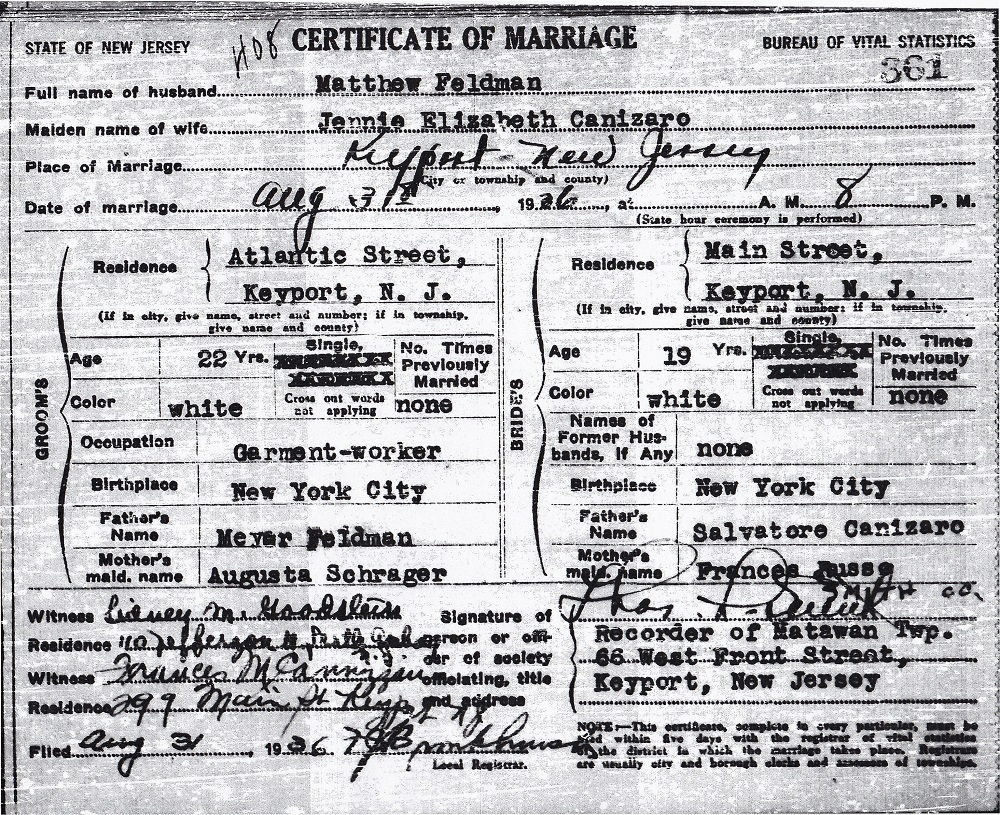 STATE OF NEW JERSEY
H08
CERTIFICATE OF MARRIAGE
BUREAU OF VITAL STATISTICS
361
Full name of husband Matthew Feldman
Maiden name of wife Jennie Elizabeth Canizaro
Place of Marriage Keyport - New Jersey
(City or township and county)
Date of marriage Aug 31st, 1936, at A. M. 8 P. M.
(State hour ceremony is performed)
GROOM'S
Residence Atlantic Street,
Keyport, N. J.
(If in city, give name, street and number; if in township,
give name and county)
Age 22 Yrs.
Single,
No. Times Previously Married
Color white
Cross out words not applying
none
Occupation Garment-worker
Birthplace New York City
Father's Name Meyer Feldman
Mother's maid. name Augusta Schrager
BRIDE'S
Residence Main Street,
Keyport, N. J.
(If in city, give name, street and number; if in township,
give name and county)
Age 19 Yrs.
Single,
No. Times Previously Married
Color white
Cross out words not applying
none
Names of Former Husbands, If Any none
Birthplace New York City
Father's Name Salvatore Canizaro
Mother's maid. name Frances Russo
Witness Sidney M. Goodstein
Residence 110 Jefferson
Witness Frances M Cannizaro
Residence 299 Main St Keyport NJ
Filed Aug 31, 1936
Local Registrar.
Signature of person or officer of society officiating, title and address
SMITH CO.
Recorder of Matawan Twp.
66 West Front Street,
Keyport, New Jersey
NOTE:—This certificate, complete in every particular, must be
filed within five days with the registrar of vital statistics
of the district in which the marriage takes place. Registrars
are usually city and borough clerks and assessors of townships.